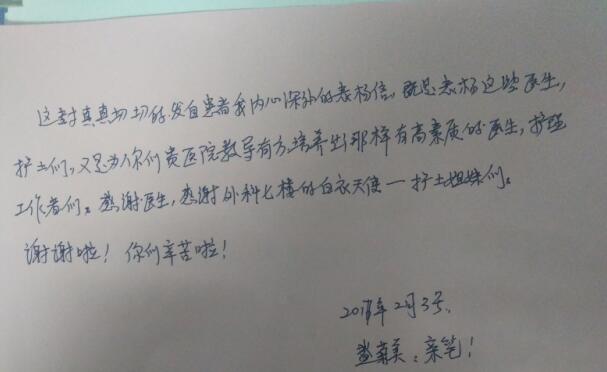 这封真真切切的发自患者我内心深处的表扬信，既是表扬这些医生，
护士们，又是为你们贵医院教导有方，培养出那样有高素质的医生，护理
工作者们。感谢医生，感谢外科七楼的白衣天使一护士姐妹们。
谢谢啦！你们辛苦啦！
年2月3号，
美：亲笔！